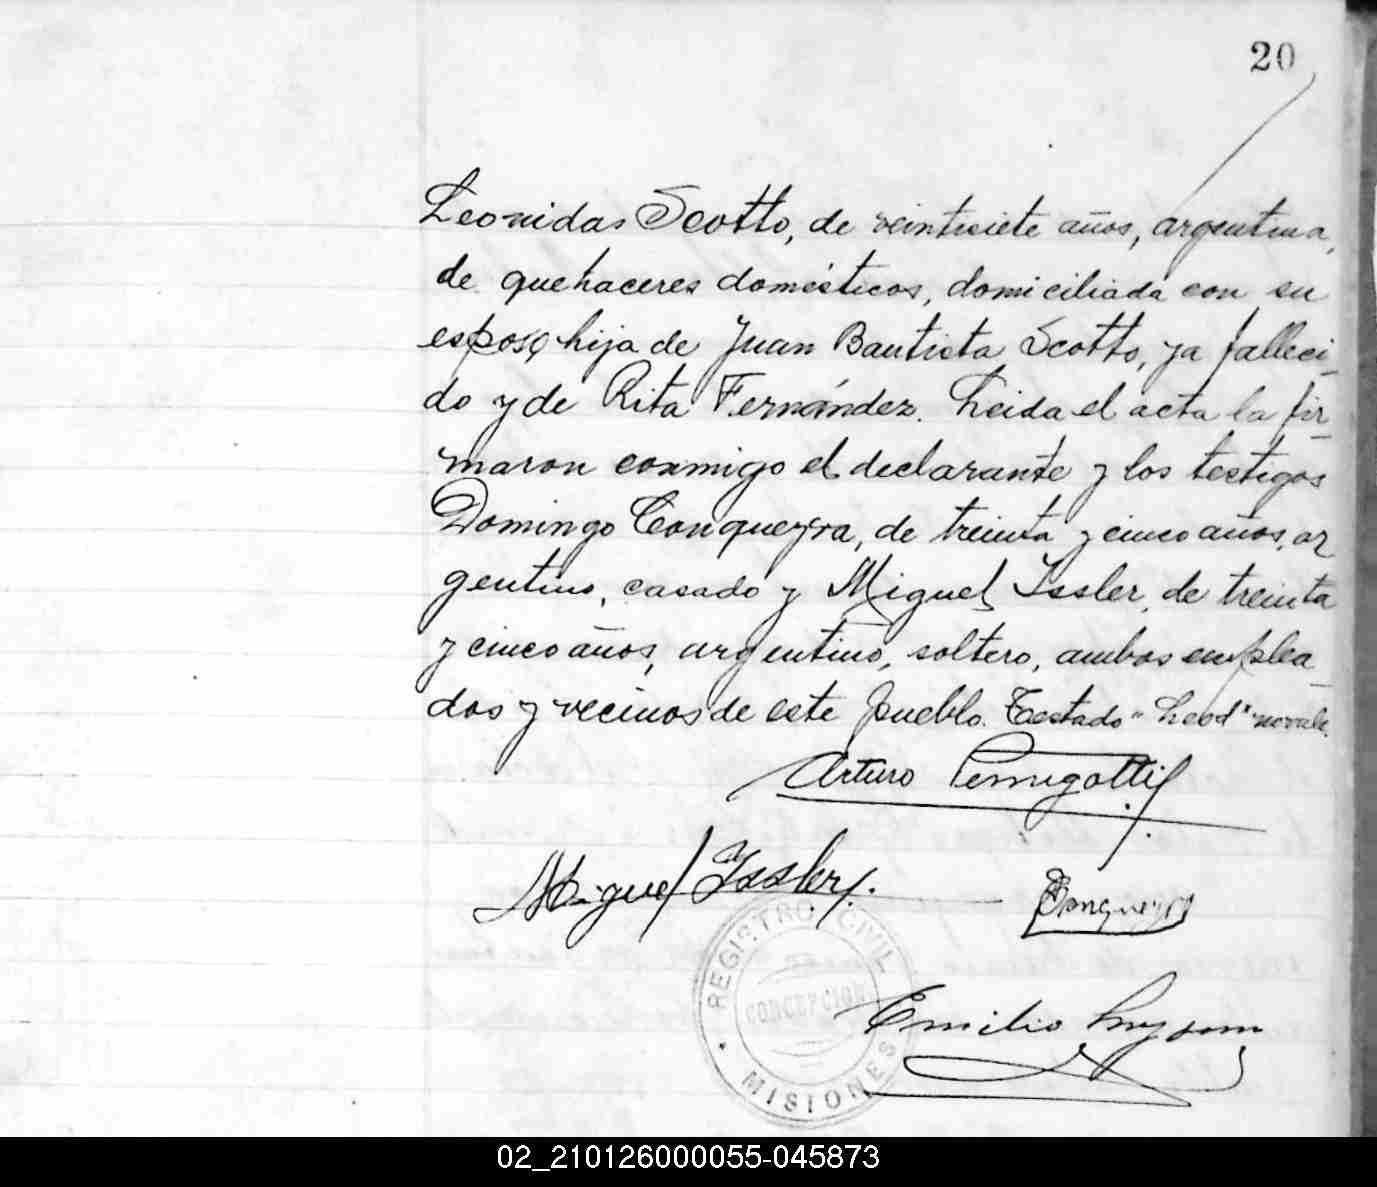 20
Leonidas Scotto, de veintisiete años, argentina,
de quehaceres domésticos, domiciliada con su
esposo, hija de Juan Bautista Scotto, ya falleci-
do y de Rita Fernández. Leida el acta la fir-
maron conmigo el declarante y los testigos
Domingo Conqueyra, de treinta y cinco años, ar
gentino, casado y Miguel Issler, de treinta
y cinco años, argentino, soltero, ambos emplea-
dos y vecinos de este pueblo. Testado " " no vale.
Arturo
Miguel Issler
Conqueyra
REGISTRO CIVIL
CONCEPCION
MISIONES
Emilio
02_210126000055-045873